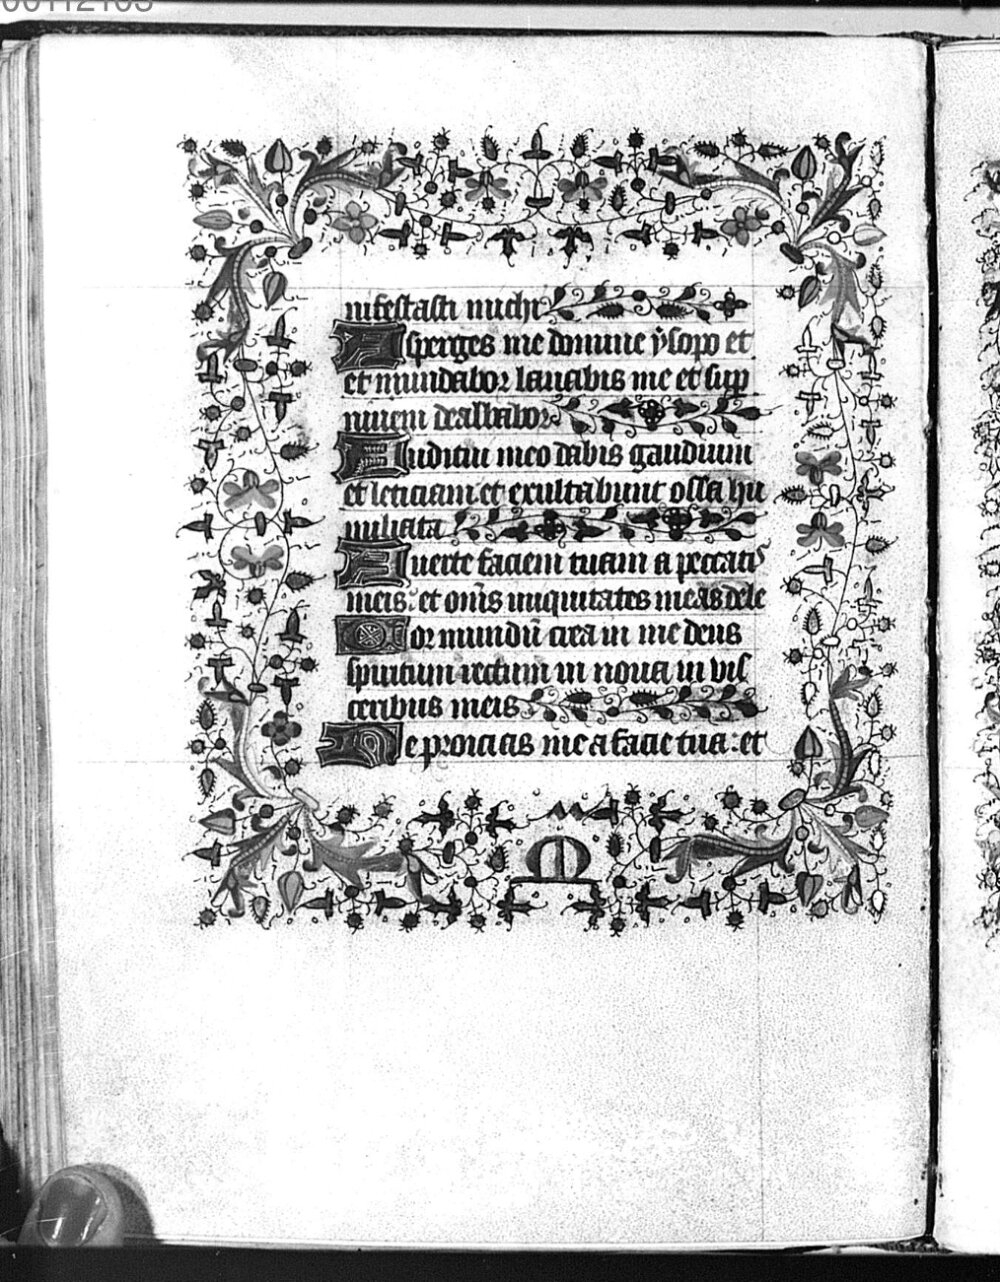 00112103
nifestasti michi
Asperges me domine ysopo et
et mundabor lauabis me et sup
niuem dealbabor
Auditui meo dabis gaudium
et leticiam et exultabunt ossa hu
miliata
Auerte faciem tuam a peccatis
meis: et om̄s iniquitates meas dele
Cor mundū crea in me deus
spiritum rectum in noua in vis
ceribus meis
Ne proicias me a facie tua: et
M